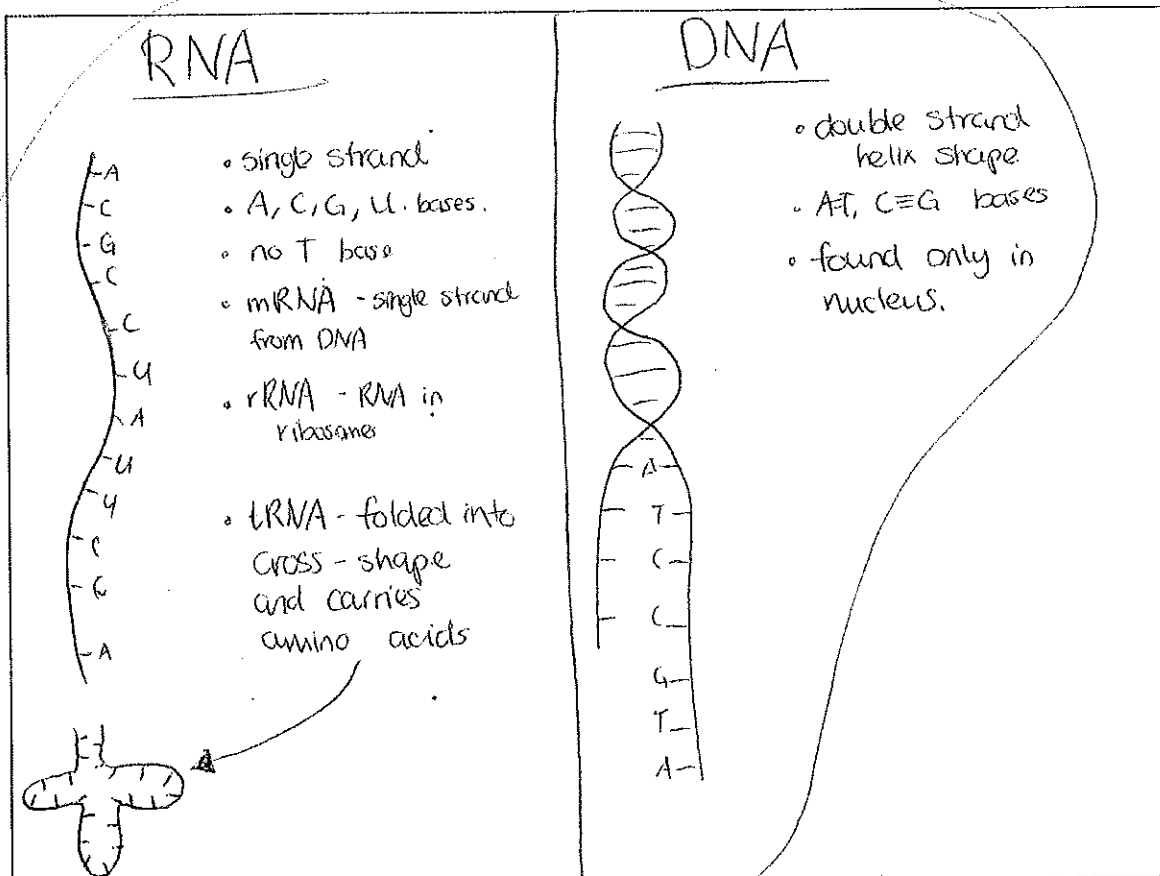 RNA
A
C
G
C
C
U
A
U
U
C
G
A
• single strand
• A, C, G, U. bases.
• no T base
• mRNA - single strand
from DNA
• rRNA - RNA in
ribosomes
• tRNA - folded into
cross-shape
and carries
amino acids
DNA
A
T
C
C
G
T
A
• double strand
helix shape
• A=T, C≡G bases
• found only in
nucleus.